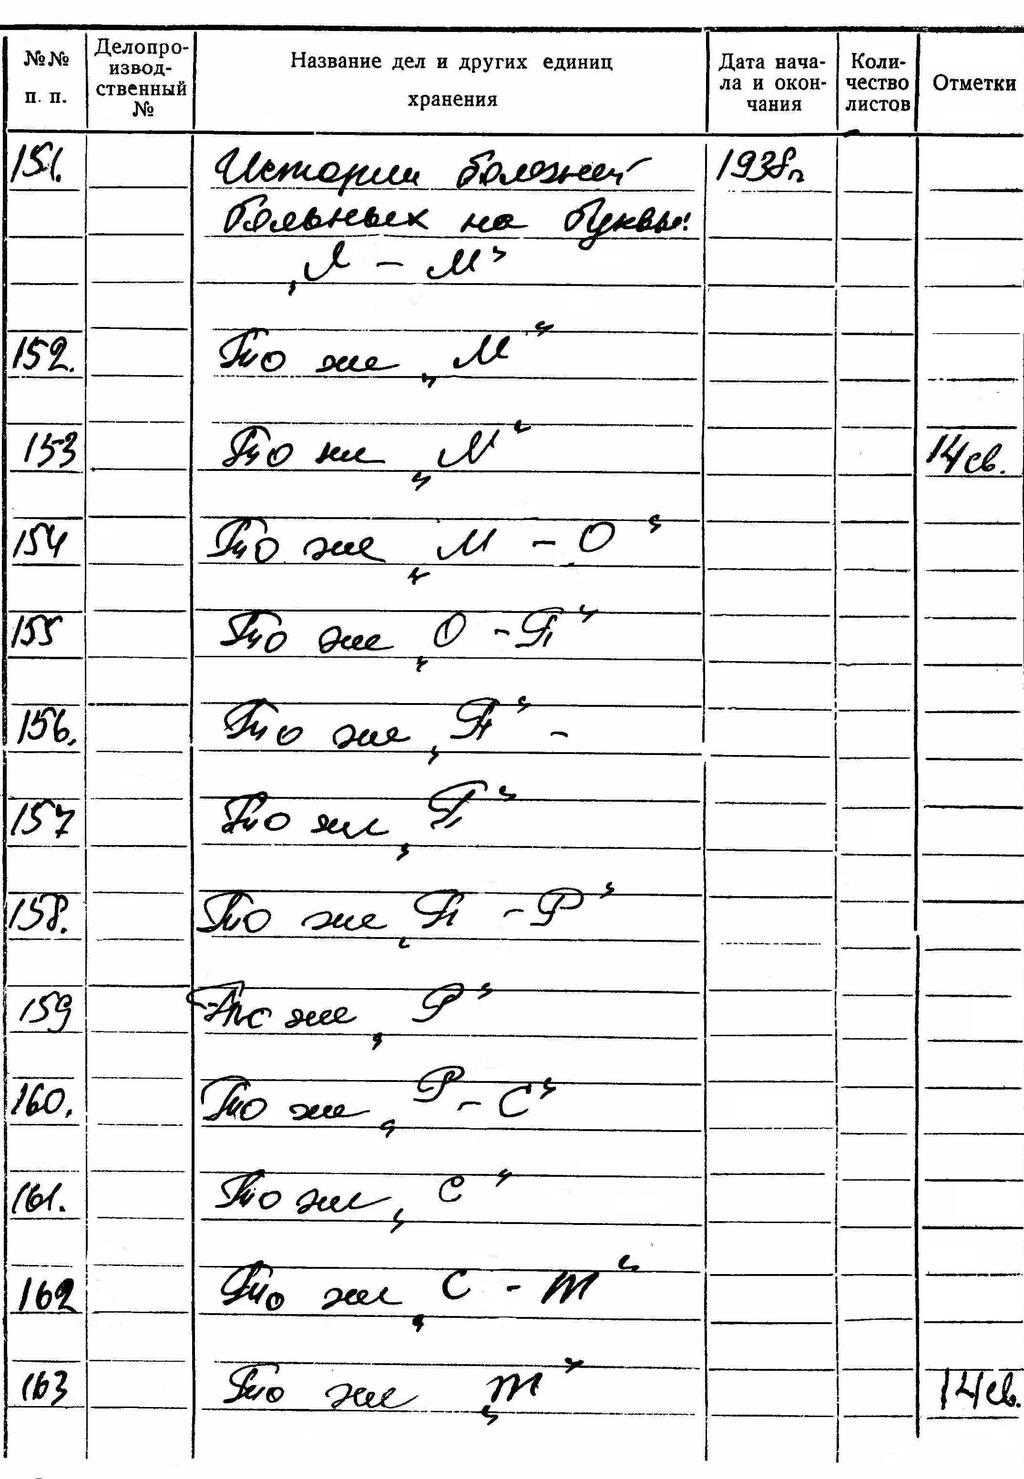 №№ п. п. Делопроизводственный № Название дел и других единиц хранения Дата начала и окончания Количество листов Отметки
151. Истории болезней 1938г
больных на буквы:
„Л – М"
152. То же „М"
153 То же „М" 14 св.
154 То же „М – О"
155 То же „О – П"
156. То же „П" –
157 То же „П"
158. То же „П – Р"
159 То же „Р"
160. То же „Р – С"
161. То же „С"
162 То же „С – Т"
163 То же „Т" 14 св.